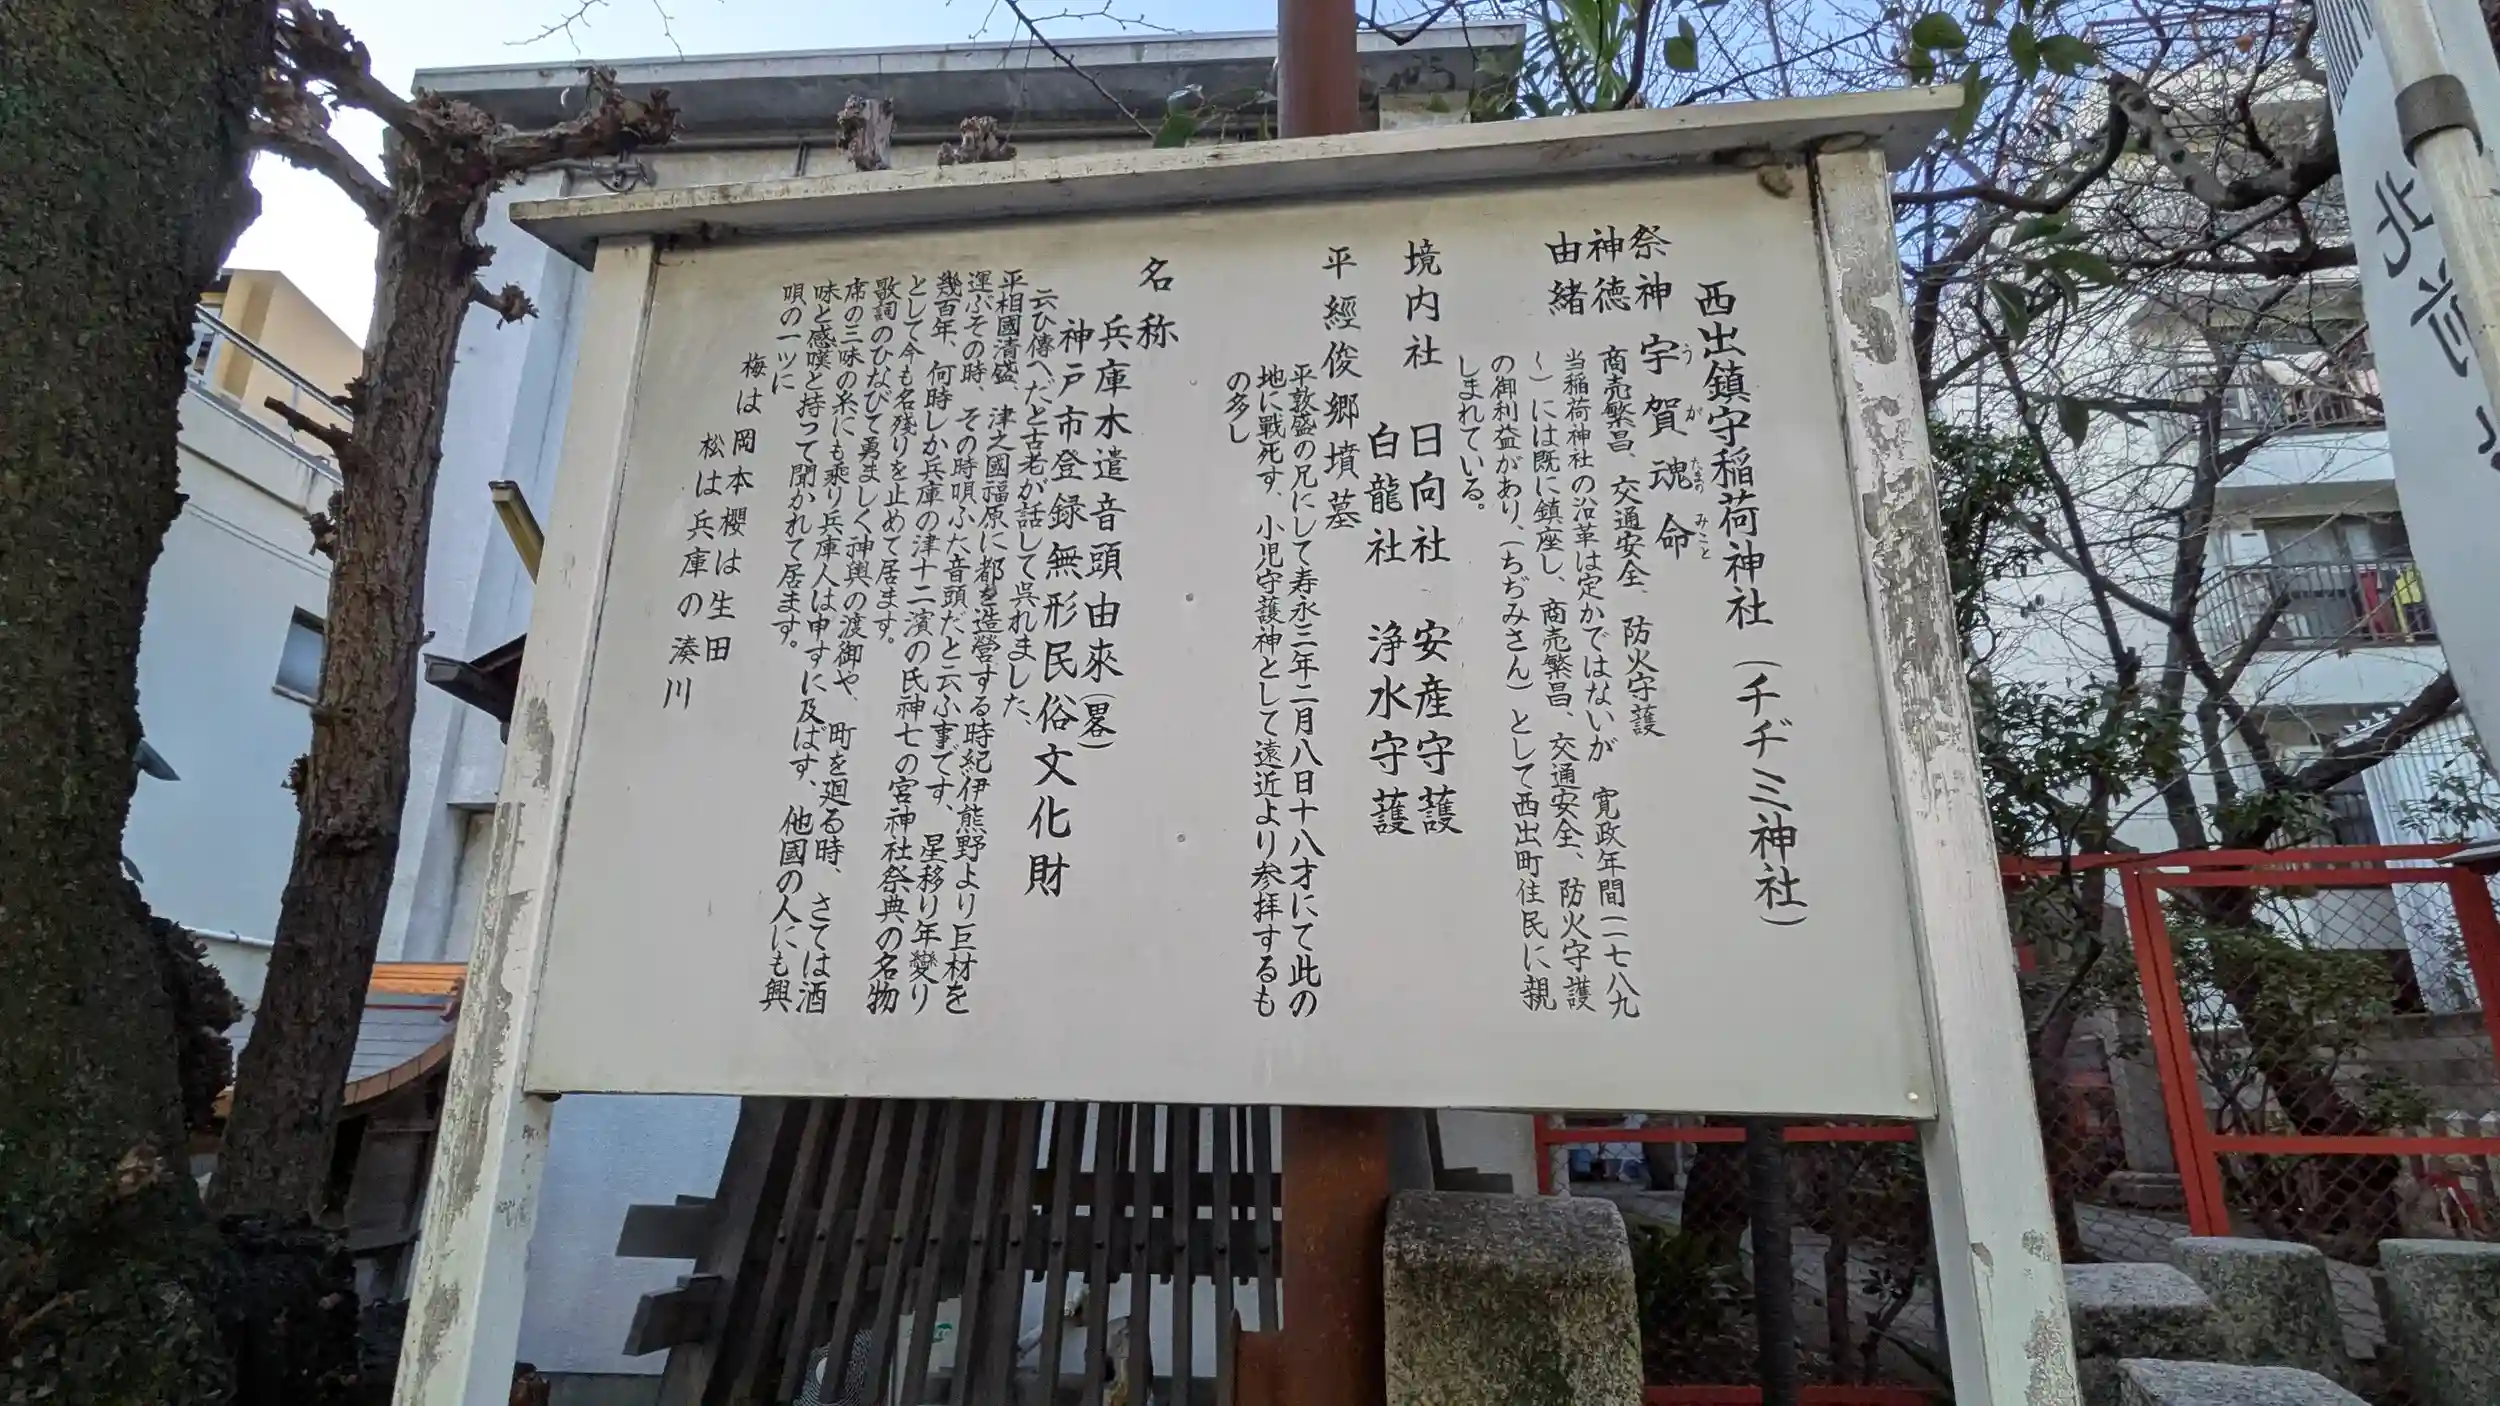 西出鎮守稲荷神社（チヂミ神社）
祭神 宇賀魂命
うがたまのみこと
神徳 商売繁昌、交通安全、防火守護
由緒 当稲荷神社の沿革は定かではないが 寛政年間(一七八九
～)には既に鎮座し、商売繁昌、交通安全、防火守護
の御利益があり、(ちぢみさん)として西出町住民に親
しまれている。
境内社 日向社 安産守護
白龍社 浄水守護
平經俊郷墳墓
平敦盛の兄にして寿永三年二月八日十八才にて此の
地に戰死す、小児守護神として遠近より参拝するも
の多し
名称
兵庫木遣音頭由來(畧)
神戸市登録無形民俗文化財
云ひ傳へだと古老が話して呉れました、
平相國清盛、津之國福原に都を造営する時紀伊熊野より巨材を
運ぶその時 その時唄ふた音頭だと云ふ事です、星移り年變り
幾百年、何時しか兵庫の津十二濱の氏神七の宮神社祭典の名物
として今も名残りを止めて居ます。
歌詞のひなびて勇ましく神輿の渡御や、町を廻る時、さては酒
席の三味の糸にも乗り兵庫人は申すに及ばす、他國の人にも興
味と感嘆と持って聞かれて居ます。
唄の一ツに
梅は岡本櫻は生田
松は兵庫の湊川
北前